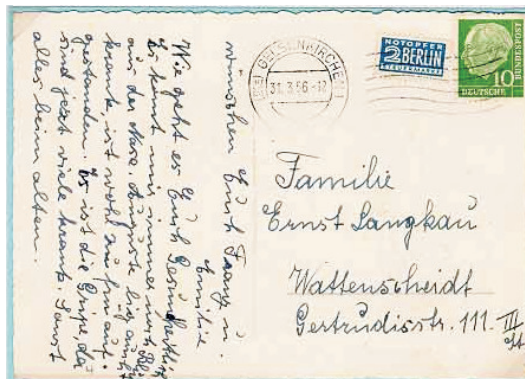 wünschen Euch Franz u.
Emilie
Wie geht es Euch
Es kommt mir immer noch
aus der Nase. Auguste lag
krank, ist wohl zu früh auf-
gestanden. Es ist die Gripe, da
sind jetzt viele krank. Sonst
alles beim alten.
GELSENKIRCHEN
31.3.56.-12
NOTOPFER
2 BERLIN
STEUERMARKE
DEUTSCHE
BUNDESPOST
10
Familie
Ernst Langkau
Wattenscheidt
Gertrudisstr. 111 III